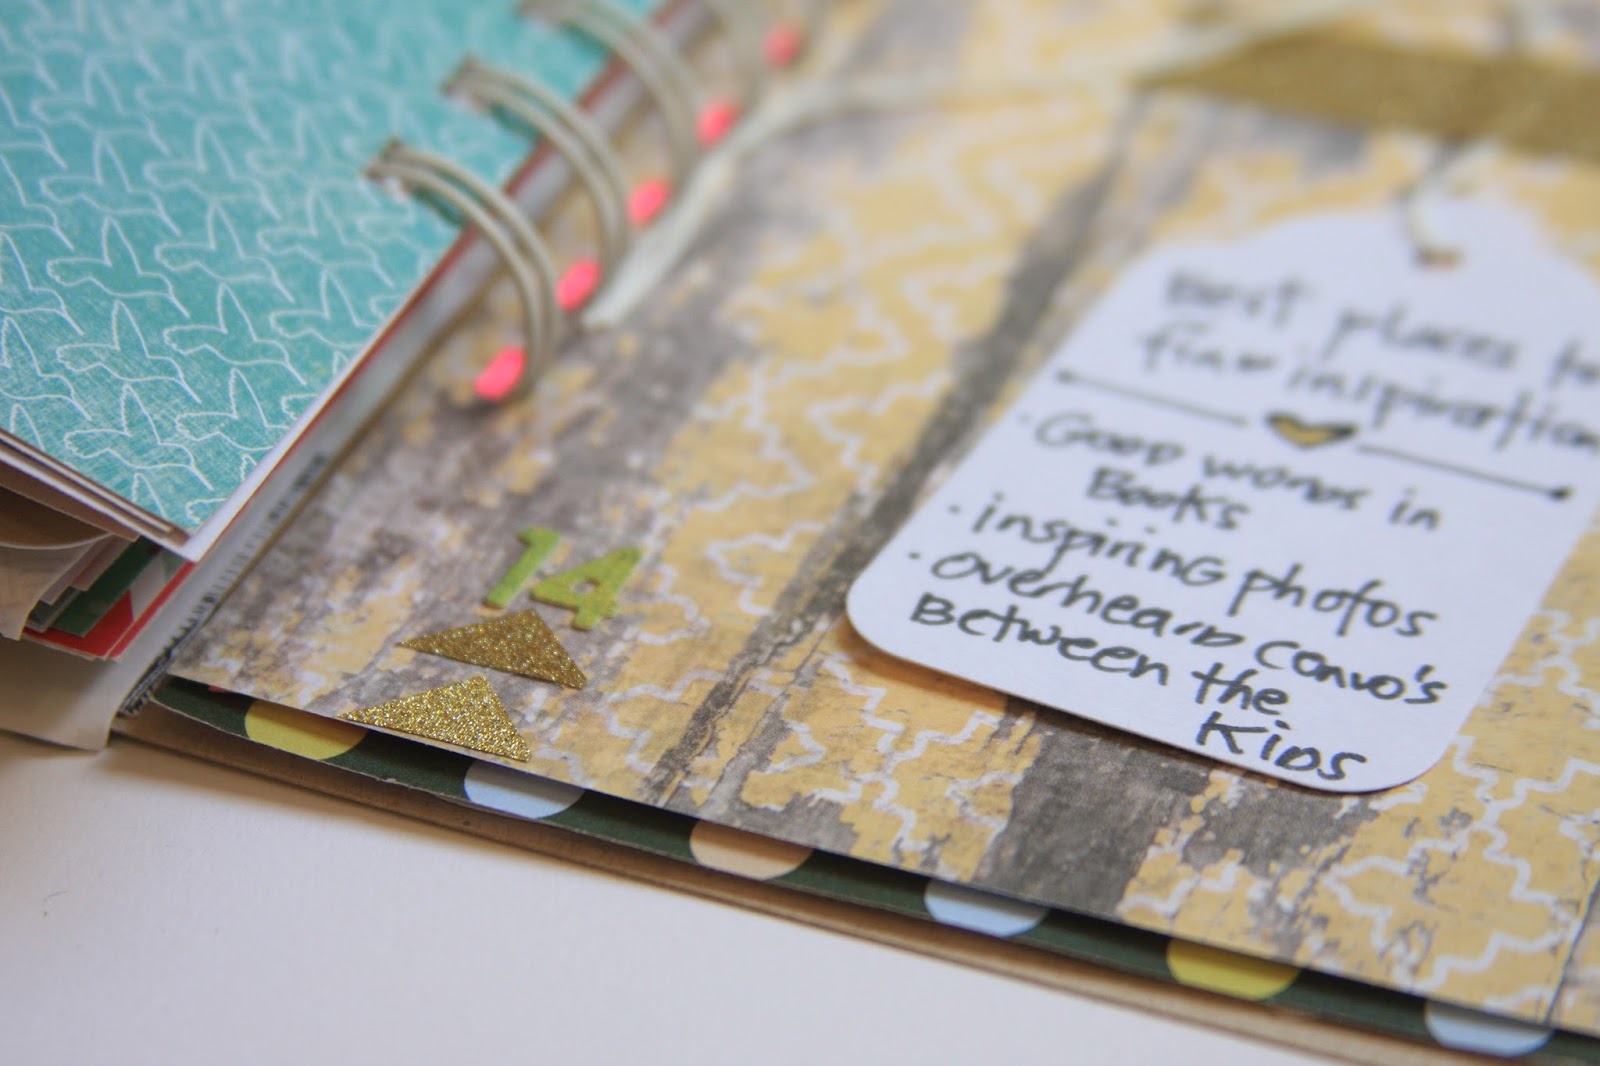 Best places to
find inspiration
· Good words in
Books
· inspiring photos
· overheard convo's
Between the
Kids
14